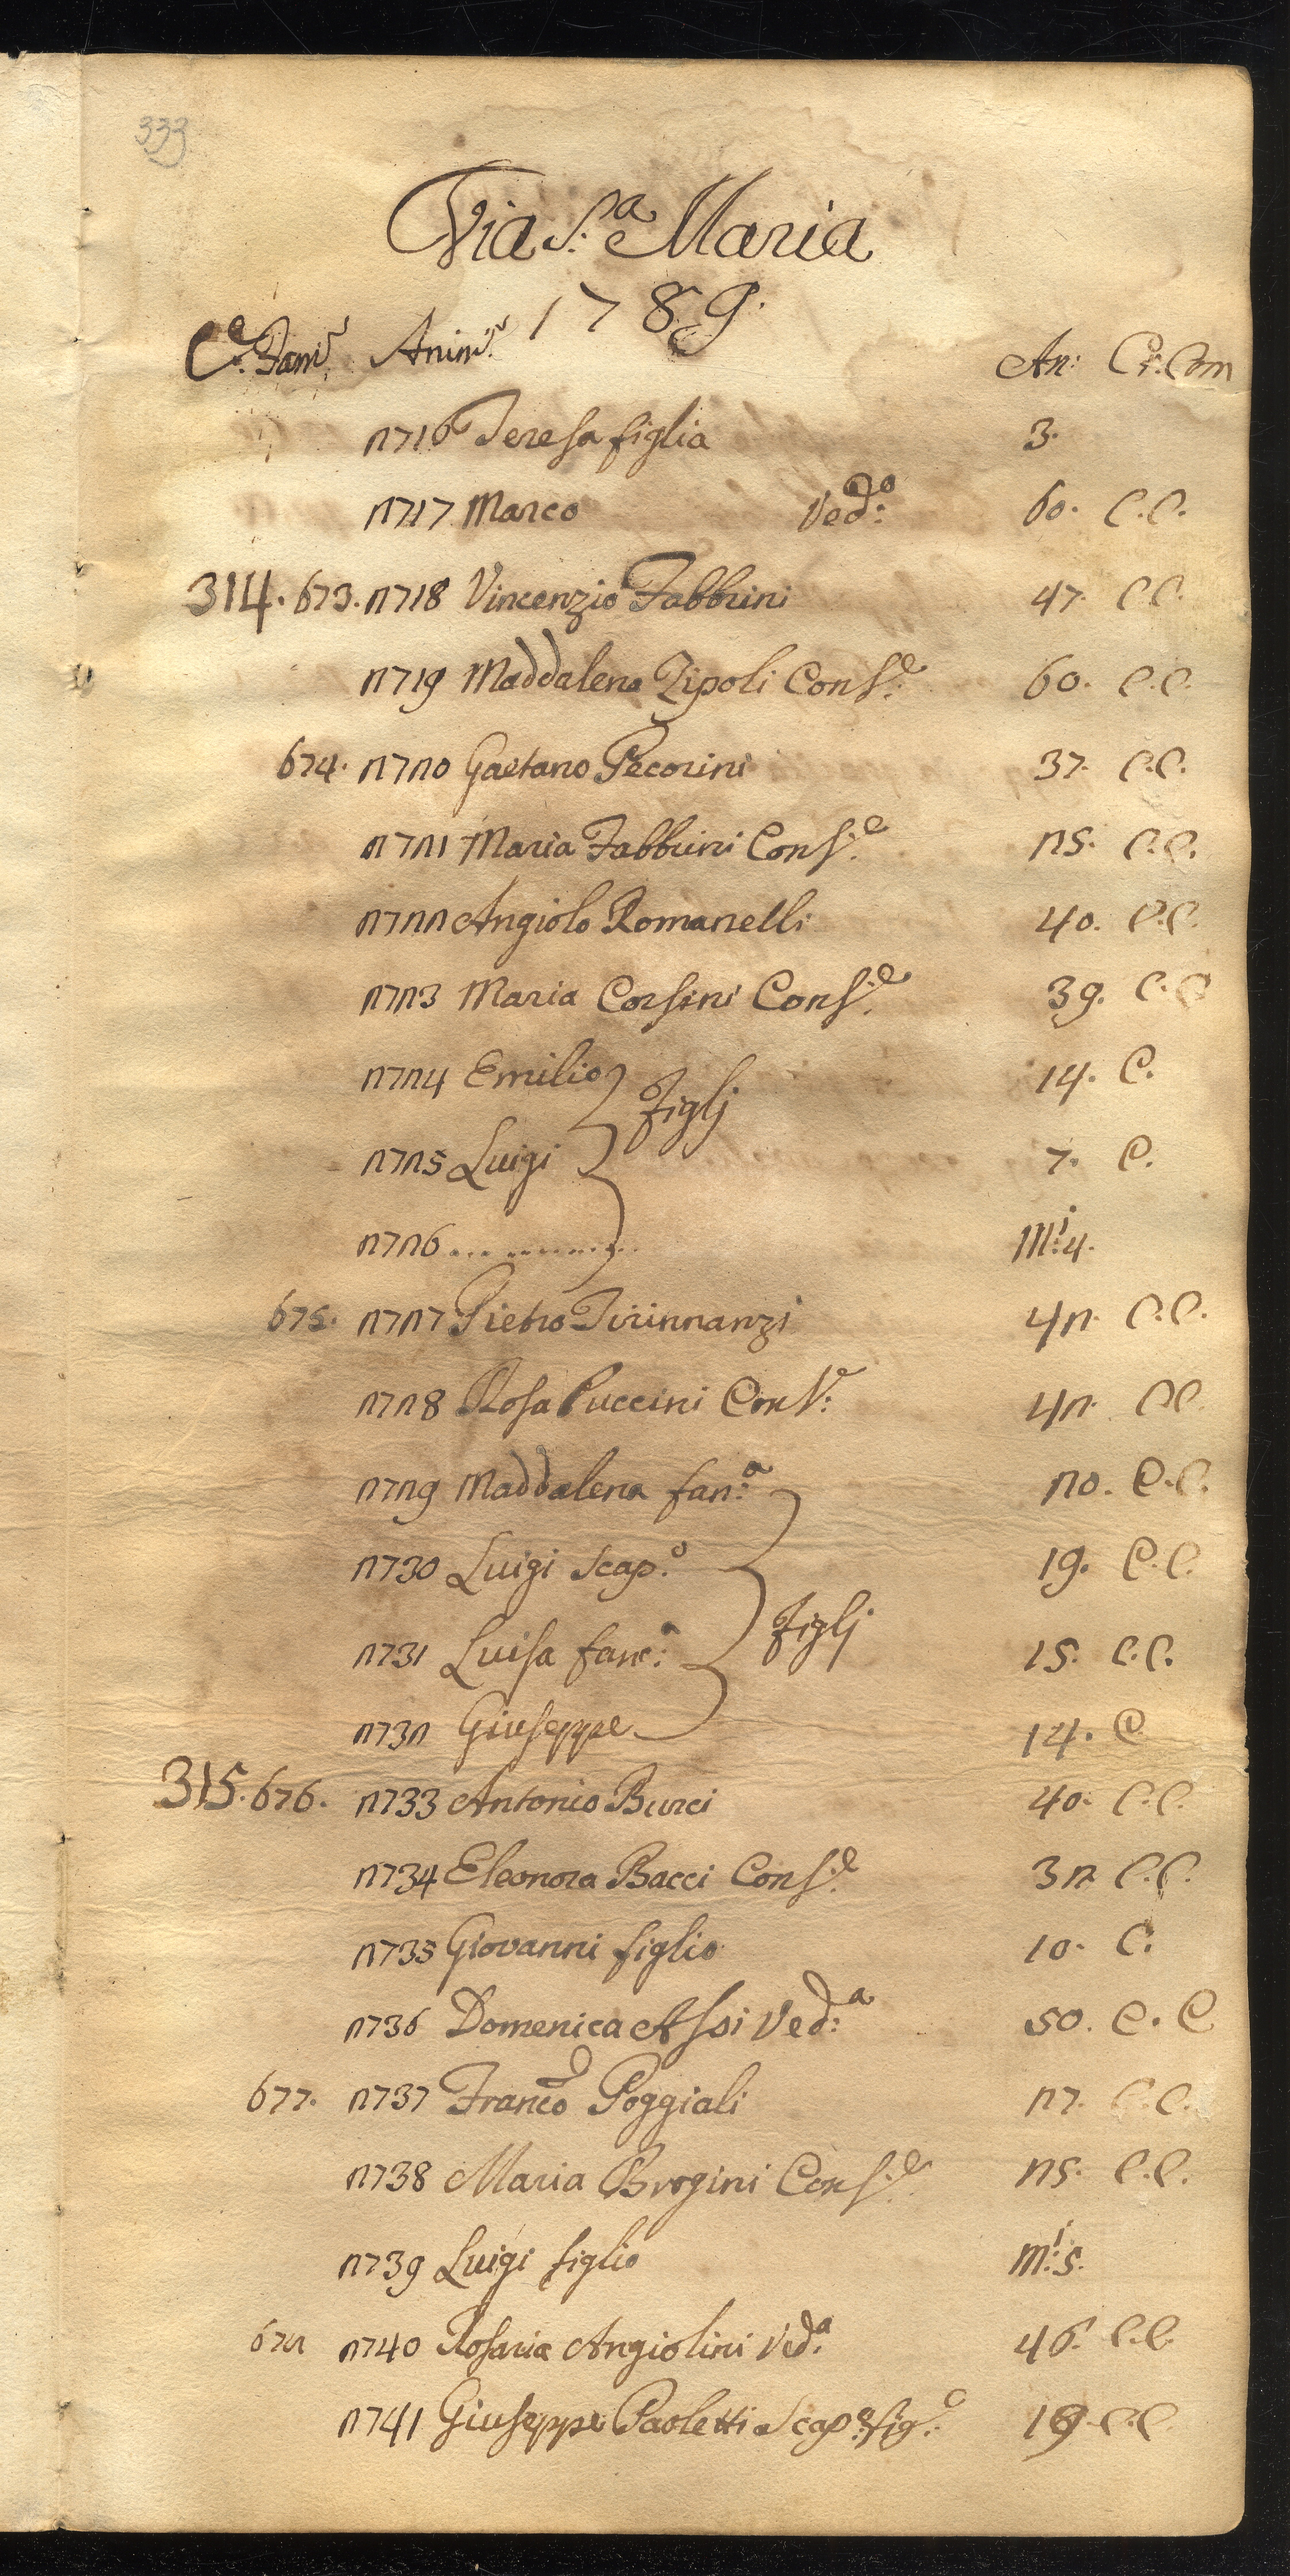 333
Via S.ª Maria
1789.
C.e Fam.e Anim.e An: Cr: Com
2716 Teresa figlia 3.
2717 Marco Ved:o 60. C.C.
314. 673. 2718 Vincenzio Fabbrini 47. C.C.
2719 Maddalena Zipoli Cons:e 60. C.C.
674. 2720 Gaetano Pecorini 37. C.C.
2721 Maria Fabbrini Cons:e 25. C.C.
2722 Angiolo Romanelli 40. C.C.
2723 Maria Corsini Cons:e 39. C.C
2724 Emilio 14. C.
Figlj
2725 Luigi 7. C.
2726 ............ M:i 4.
675. 2727 Pietro Tirinnanzi 42. C.C.
2728 Rosa Puccini Cons:e 42. C.C.
2729 Maddalena fan:a 20. C.C.
2730 Luigi Scap:o 19. C.C.
Figlj
2731 Luisa fanc:a 15. C.C.
2732 Giuseppe 14. C
315. 676. 2733 Antonio Burci 40. C.C.
2734 Eleonora Bacci Cons:e 32 C.C.
2735 Giovanni figlio 10. C.
2736 Domenica Assi Ved:a 50. C. C
677. 2737 Franco Poggiali 27. C.C.
2738 Maria Brogini Cons:e 25. C.C.
2739 Luigi figlio m:i 5.
678 2740 Rosaria Angiolini Ved:a 46. C.C.
2741 Giuseppe Paoletti Scap:o fig:o 19. C.C.